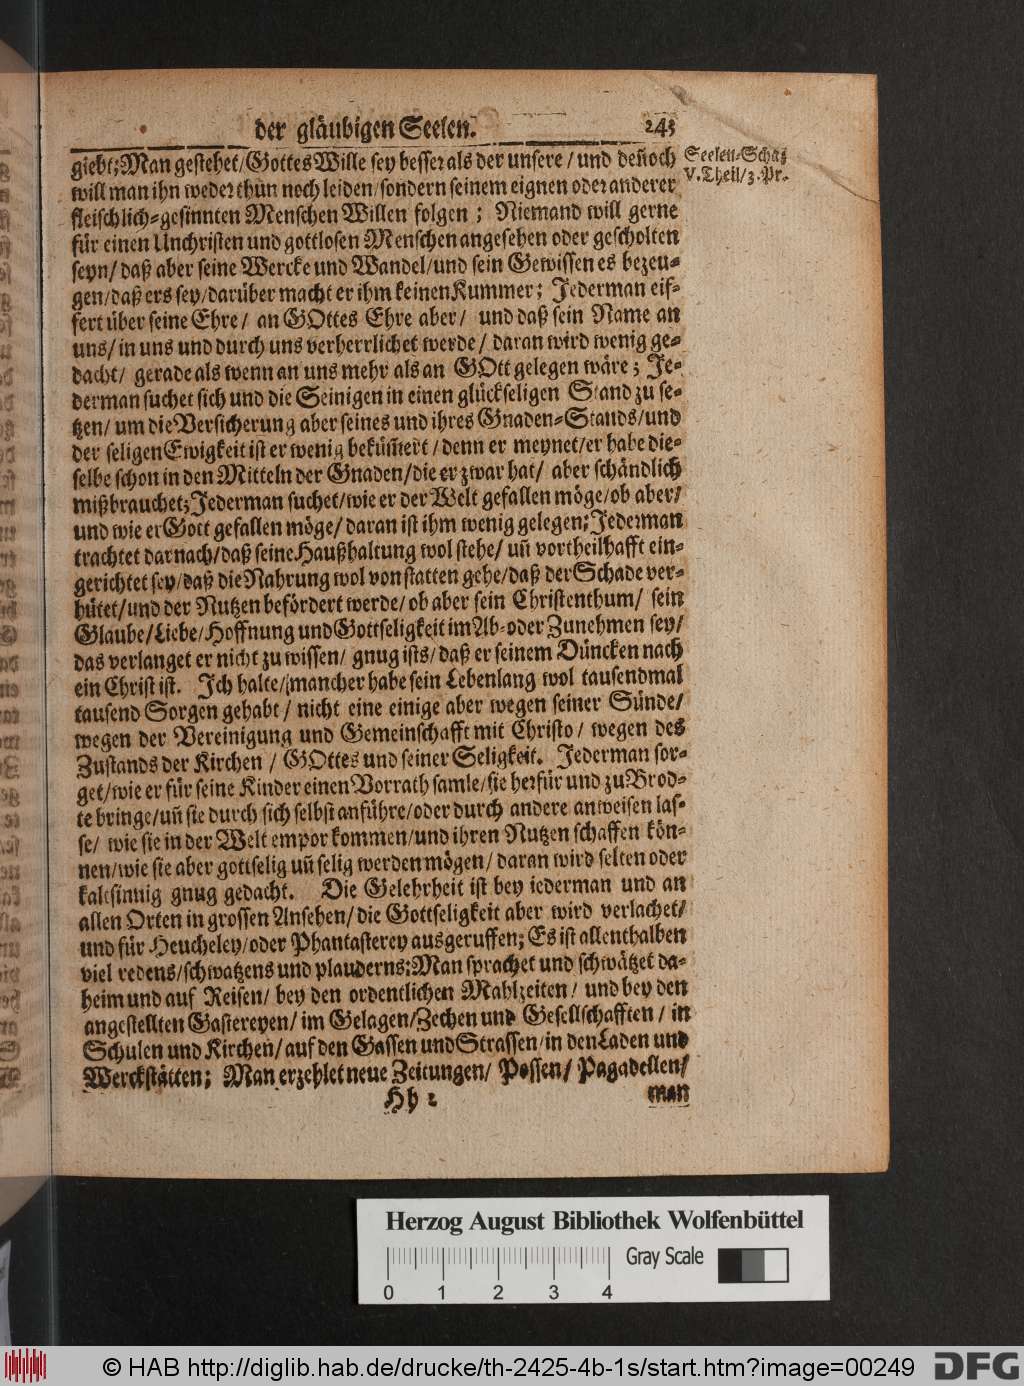 der gläubigen Seelen. 243
Seelen-Schatz
V. Theil/3. Pr.
giebt; Man gestehet/ Gottes Wille sey besser als der unsere/ und deñoch
will man ihn weder thun noch leiden/ sondern seinem eignen oder anderer
fleischlich-gesinnten Menschen Willen folgen; Niemand will gerne
für einen Unchristen und gottlosen Menschen angesehen oder gescholten
seyn/ daß aber seine Wercke und Wandel/ und sein Gewissen es bezeu-
gen/ daß ers sey/ darüber macht er ihm keinen Kummer; Jederman eif-
fert über seine Ehre/ an GOttes Ehre aber/ und daß sein Name an
uns/ in uns und durch uns verherrlichet werde/ daran wird wenig ge-
dacht/ gerade als wenn an uns mehr als an GOtt gelegen wäre; Je-
derman suchet sich und die Seinigen in einen glückseligen Stand zu se-
tzen/ um die Versicherung aber seines und ihres Gnaden-Stands/ und
der seligen Ewigkeit ist er wenig beküm̃ert/ denn er meynet/ er habe die-
selbe schon in den Mitteln der Gnaden/ die er zwar hat/ aber schändlich
mißbrauchet; Jederman suchet/ wie er der Welt gefallen möge/ ob aber/
und wie er Gott gefallen möge/ daran ist ihm wenig gelegen; Jederman
trachtet darnach/ daß seine Haußhaltung wol stehe/ uñ vortheilhafft ein-
gerichtet sey/ daß die Nahrung wol von statten gehe/ daß der Schade ver-
hütet/ und der Nutzen befördert werde/ ob aber sein Christenthum/ sein
Glaube/ Liebe/ Hoffnung und Gottseligkeit im Ab- oder Zunehmen sey/
das verlanget er nicht zu wissen/ gnug ists/ daß er seinem Düncken nach
ein Christ ist. Ich halte/ mancher habe sein Lebenlang wol tausendmal
tausend Sorgen gehabt/ nicht eine einige aber wegen seiner Sünde/
wegen der Vereinigung und Gemeinschafft mit Christo/ wegen des
Zustands der Kirchen/ GOttes und seiner Seligkeit. Jederman sor-
get/ wie er für seine Kinder einen Vorrath samle/ sie herfür und zu Brod-
te bringe/ uñ sie durch sich selbst anführe/ oder durch andere anweisen las-
se/ wie sie in der Welt empor kommen/ und ihren Nutzen schaffen kön-
nen/ wie sie aber gottselig uñ selig werden mögen/ daran wird selten oder
kaltsinnig gnug gedacht. Die Gelehrheit ist bey iederman und an
allen Orten in grossen Ansehen/ die Gottseligkeit aber wird verlachet/
und für Heucheley/ oder Phantasterey ausgeruffen; Es ist allenthalben
viel redens/ schwatzens und plauderns: Man sprachet und schwätzet da-
heim und auf Reisen/ bey den ordentlichen Mahlzeiten/ und bey den
angestellten Gastereyen/ im Gelagen/ Zechen und Gesellschafften/ in
Schulen und Kirchen/ auf den Gassen und Strassen/ in den Laden und
Werckstätten; Man erzehlet neue Zeitungen/ Possen/ Pagadellen/
Hh 2 man
Herzog August Bibliothek Wolfenbüttel
Gray Scale
0 1 2 3 4
© HAB http://diglib.hab.de/drucke/th-2425-4b-1s/start.htm?image=00249 DFG